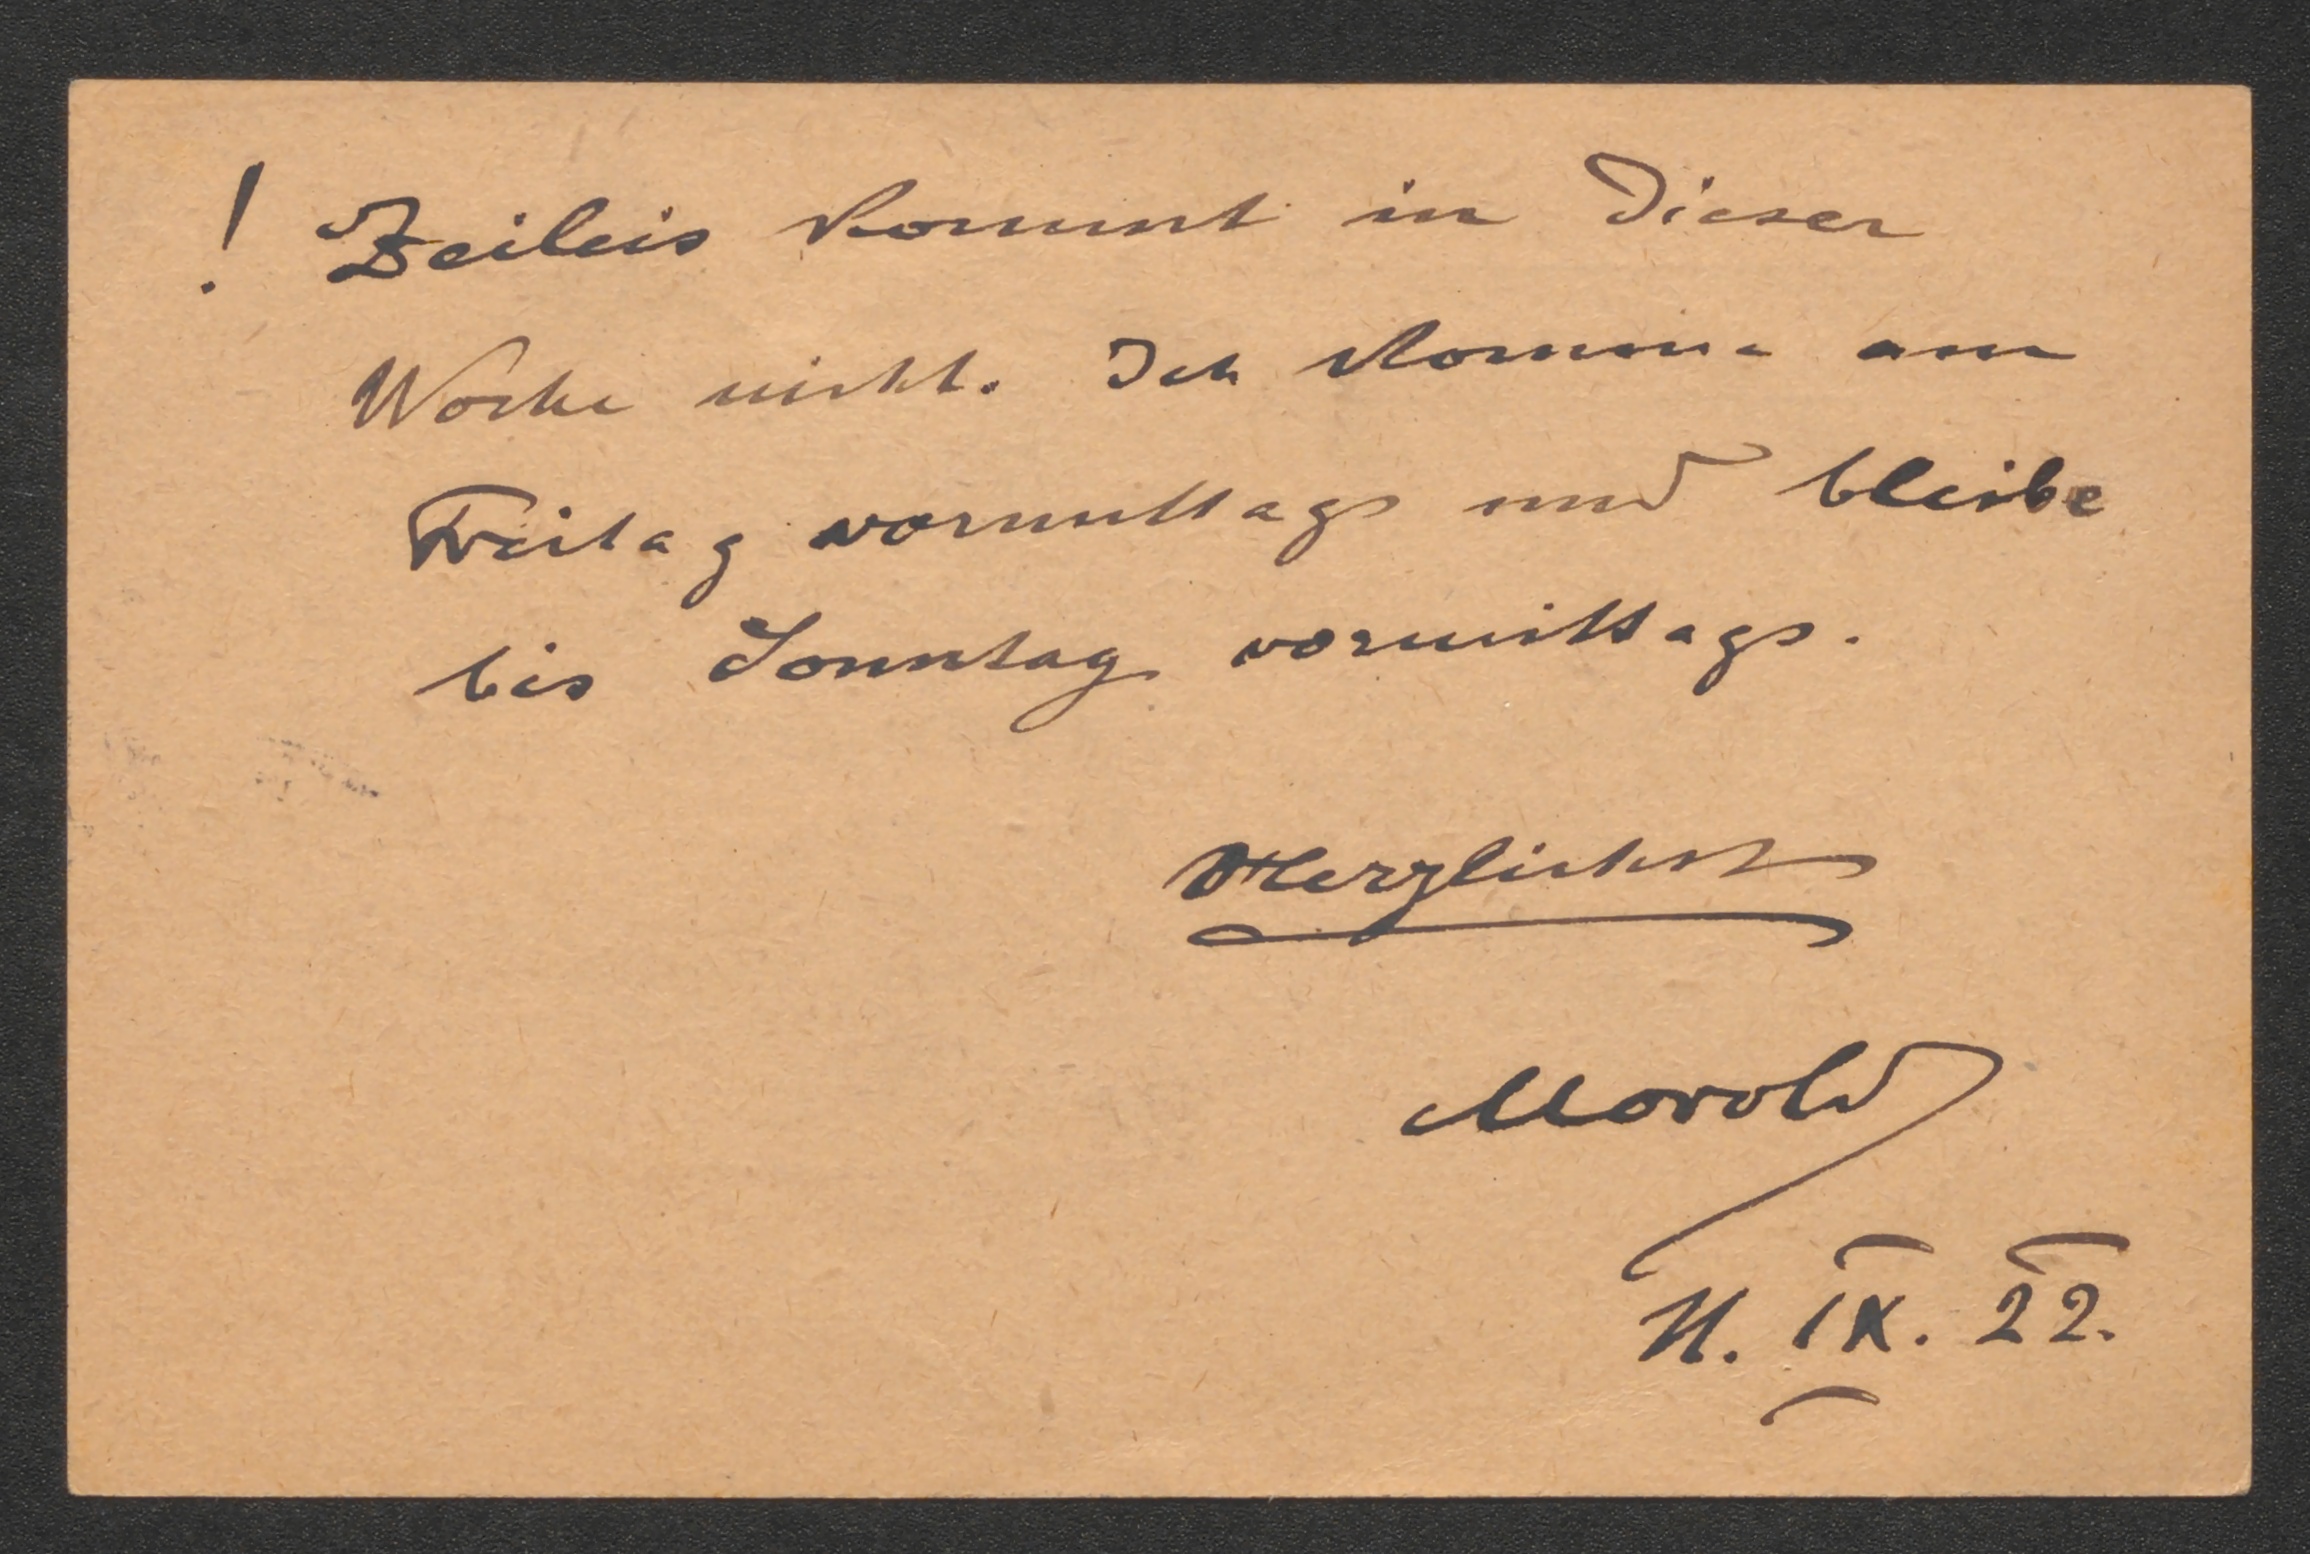 ! Zeileis kommt in dieser
Woche nicht. Ich komme am
Freitag vormittags und bleibe
bis Sonntag vormittags.
Herzlichst
Morold
11. IX. 22.